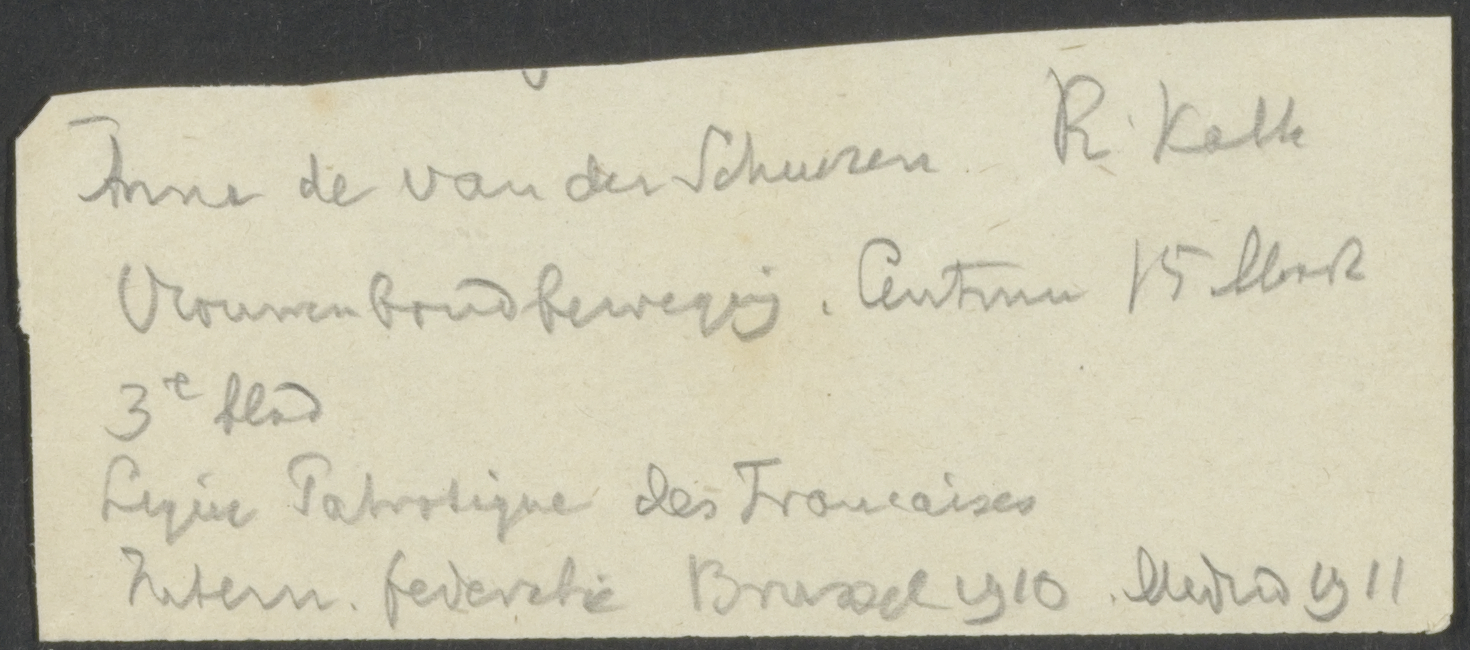 Anna de van der Schueren R. Kath
Vrouwenbondbeweging. Centrum 15 Maart
3e blad
Ligue Patriotique des Francaises
Intern. federatie Brussel 1910. Madrid 1911